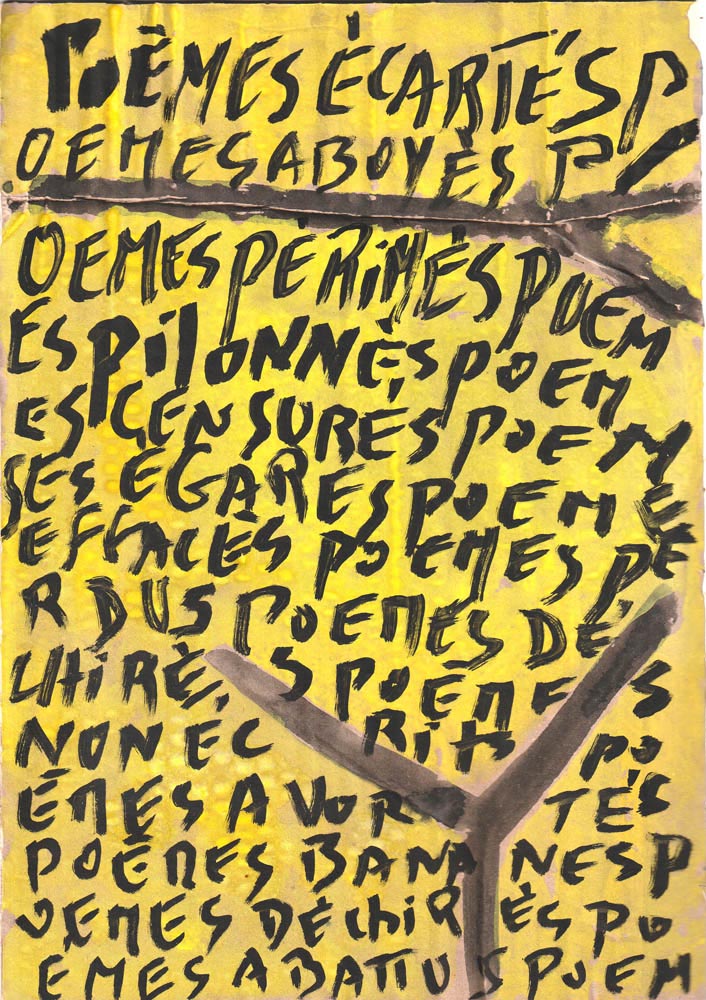 POÈMES ÉCARTÉS P
OEMES ABOYÈS P
OEMES PÈRIMÉS POEM
ES PILONNÈS POEM
ES CENSURÉS POEM
SES ÉGARÉS POEME
EFFACÈS POEMES PÉ
RDUS POEMES DÉ
CHIRÈS POÈMES
NON ECRITS PO
ÈMES AVORTÉS
POÈMES BANANES P
OEMES DÉCHIRÉS PO
EMES ABATTUS POEM